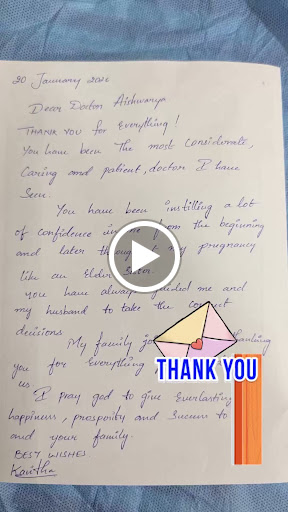 20 January 2026
Dear Doctor Aishwarya
THANK YOU for Everything!
You have been The most Considerate,
Caring and patient, doctor I have
Seen.
You have been instilling a lot
of confidence in me from the beginning
and later my pregnancy
like an Elder Sister.
You have always guided me and
my husband to take the correct
decisions
My family thanking
you for everything
us
I pray god to give Everlasting
happiness, prosperity and Success to
and your family.
BEST WISHES
Kavitha
THANK YOU